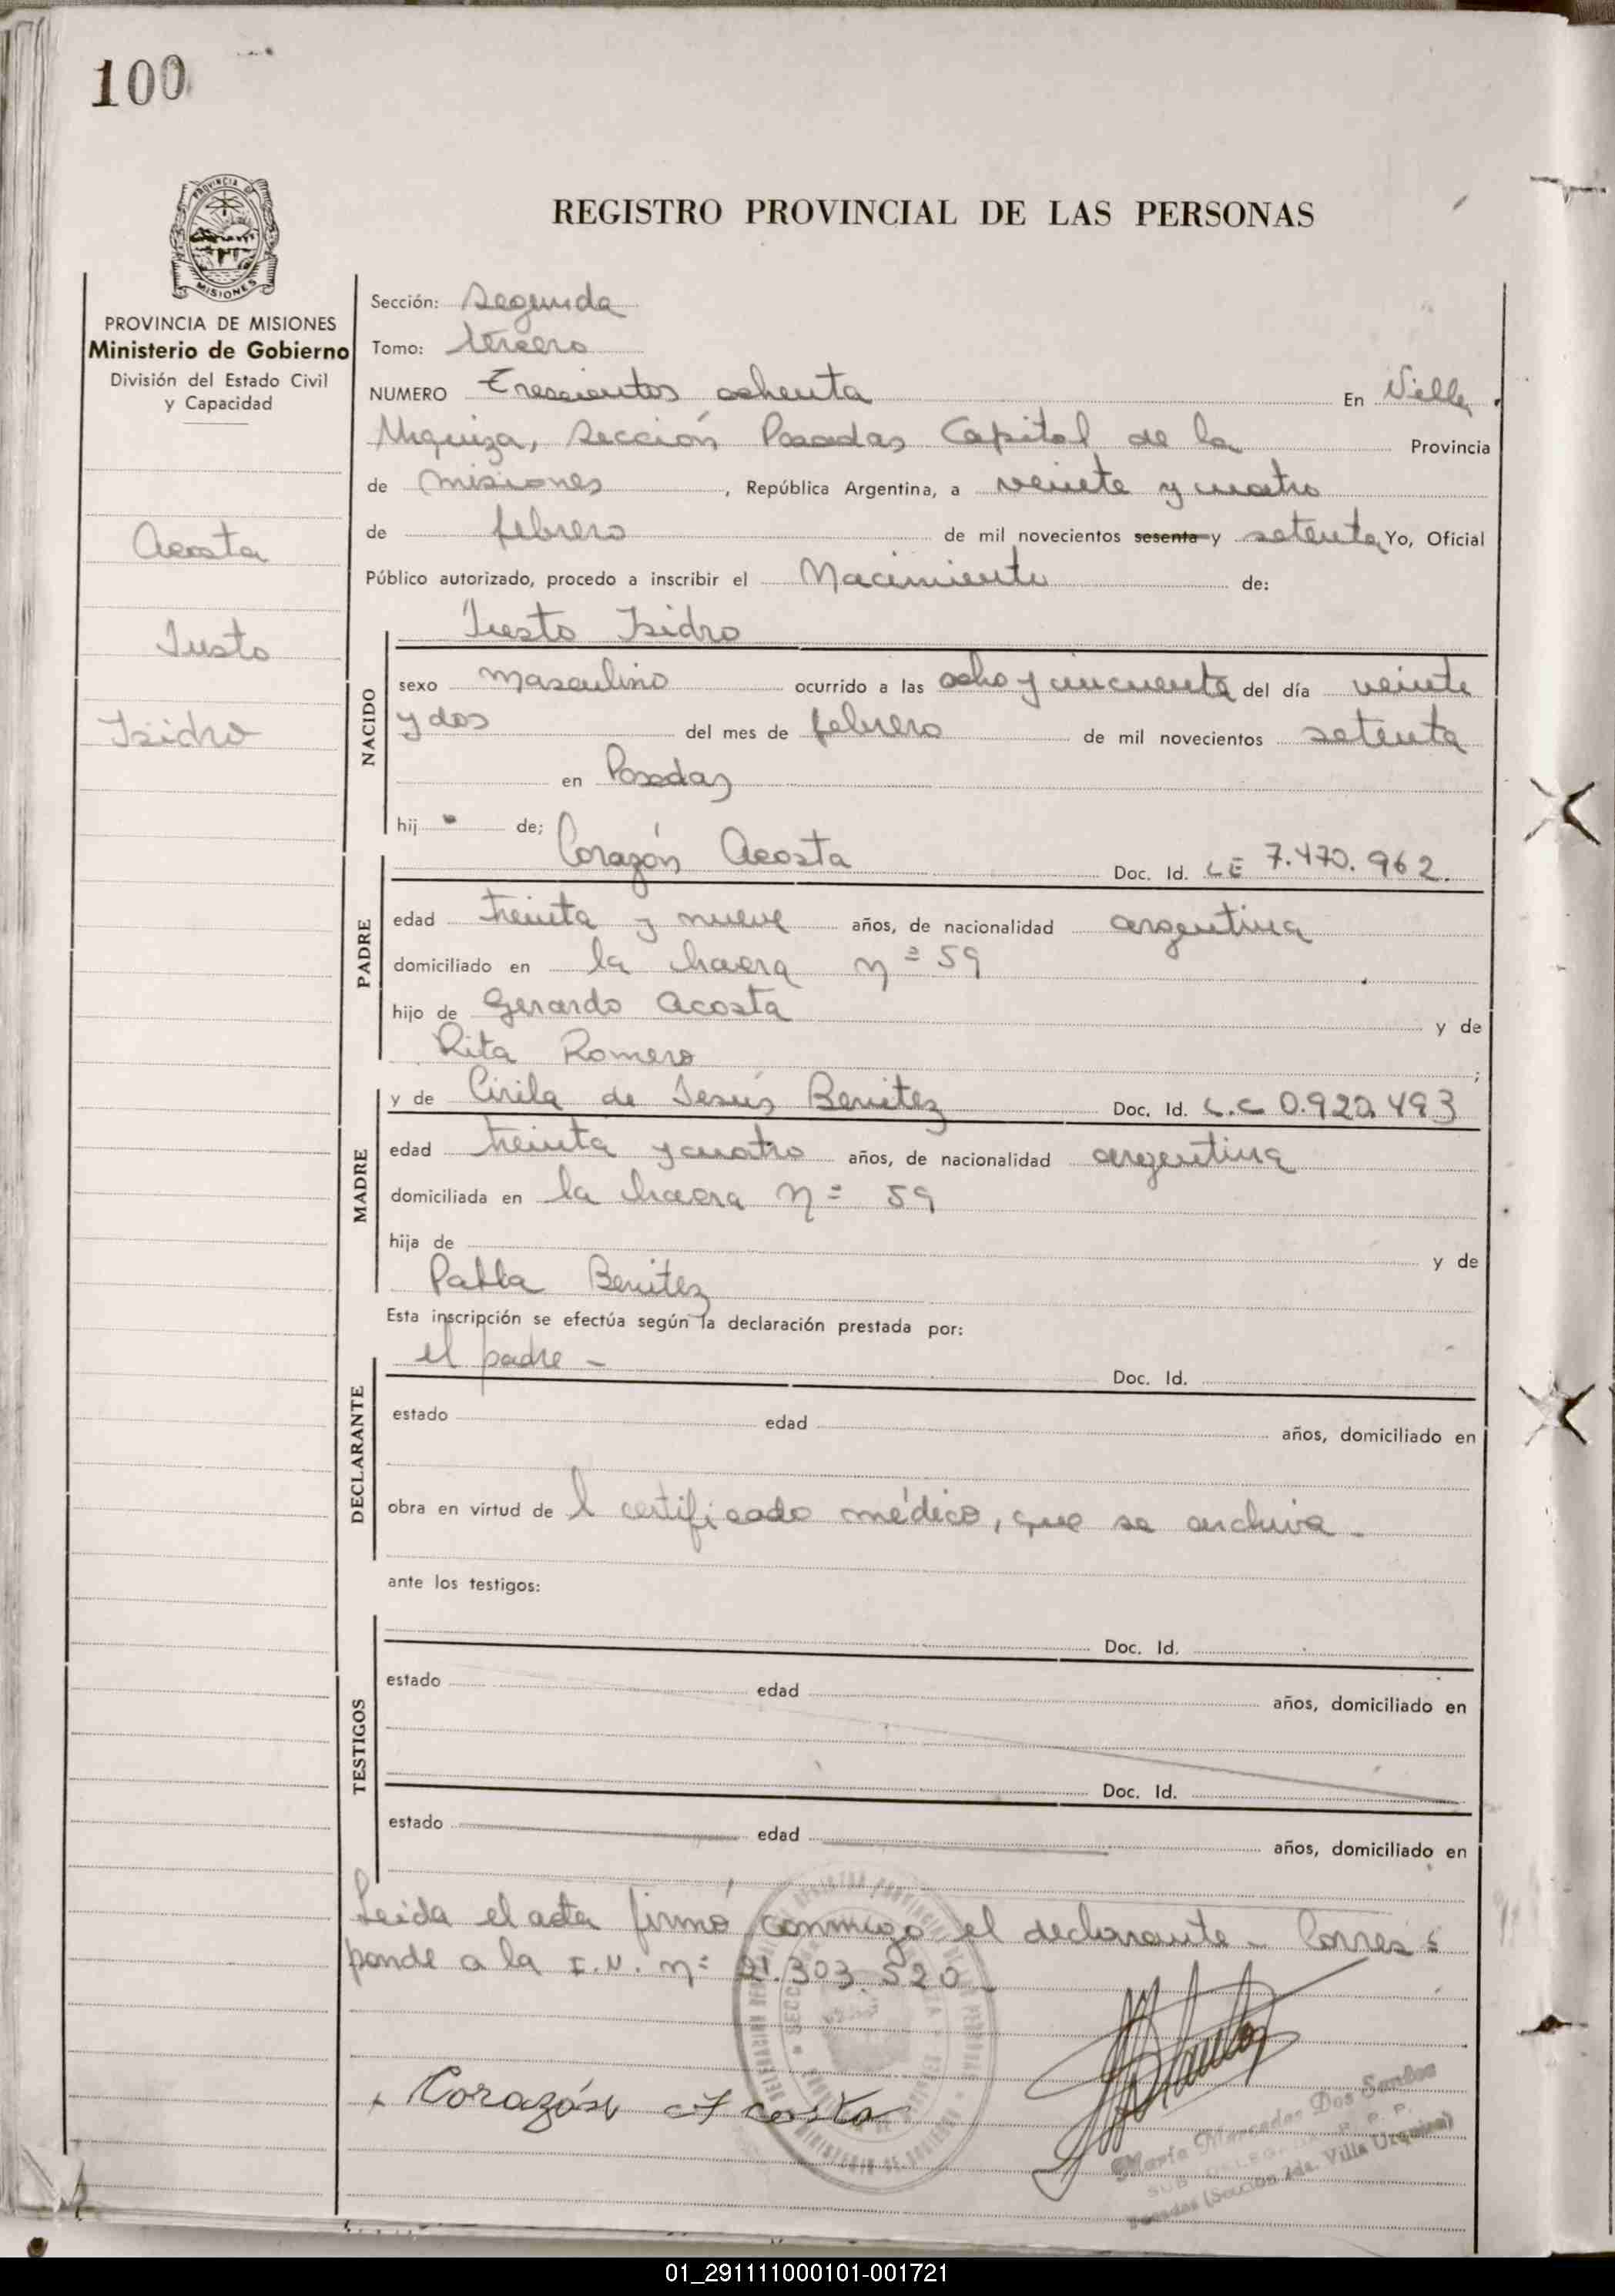 100
PROVINCIA DE
MISIONES
REGISTRO PROVINCIAL DE LAS PERSONAS
PROVINCIA DE MISIONES
Ministerio de Gobierno
División del Estado Civil
y Capacidad
Acosta
Justo
Isidro
Sección: segunda
Tomo: tercero
NUMERO Trescientos ochenta En Villa
Urquiza, sección Posadas Capital de la Provincia
de misiones, República Argentina, a veinte y cuatro
de febrero de mil novecientos sesenta y setenta Yo, Oficial
Público autorizado, procedo a inscribir el Nacimiento de:
Justo Isidro
NACIDO
sexo masculino ocurrido a las ocho y cincuenta del día veinte
y dos del mes de febrero de mil novecientos setenta
en Posadas
hij o de;
Corazón Acosta Doc. Id. LE 7.470.962.
PADRE
edad treinta y nueve años, de nacionalidad argentina
domiciliado en la chacra nº 59
hijo de Gerardo Acosta y de
Rita Romero ;
y de Cirila de Jesús Benitez Doc. Id. L.C 0.920.493
MADRE
edad treinta y cuatro años, de nacionalidad argentina
domiciliada en la chacra nº 59
hija de y de
Pabla Benitez
Esta inscripción se efectúa según la declaración prestada por:
el padre - Doc. Id.
DECLARANTE
estado edad años, domiciliado en
obra en virtud de l certificado médico, que se archiva -
ante los testigos:
Doc. Id.
TESTIGOS
estado edad años, domiciliado en
Doc. Id.
estado edad años, domiciliado en
Leida el acta firmó conmigo el declarante - Corres=
ponde a la I.N. nº 21.303.520
Corazón Acosta
María Mercedes Dos Santos
SUB DELEGADA R. P. P.
Posadas (Sección 2da. Villa Urquiza)
01_291111000101-001721